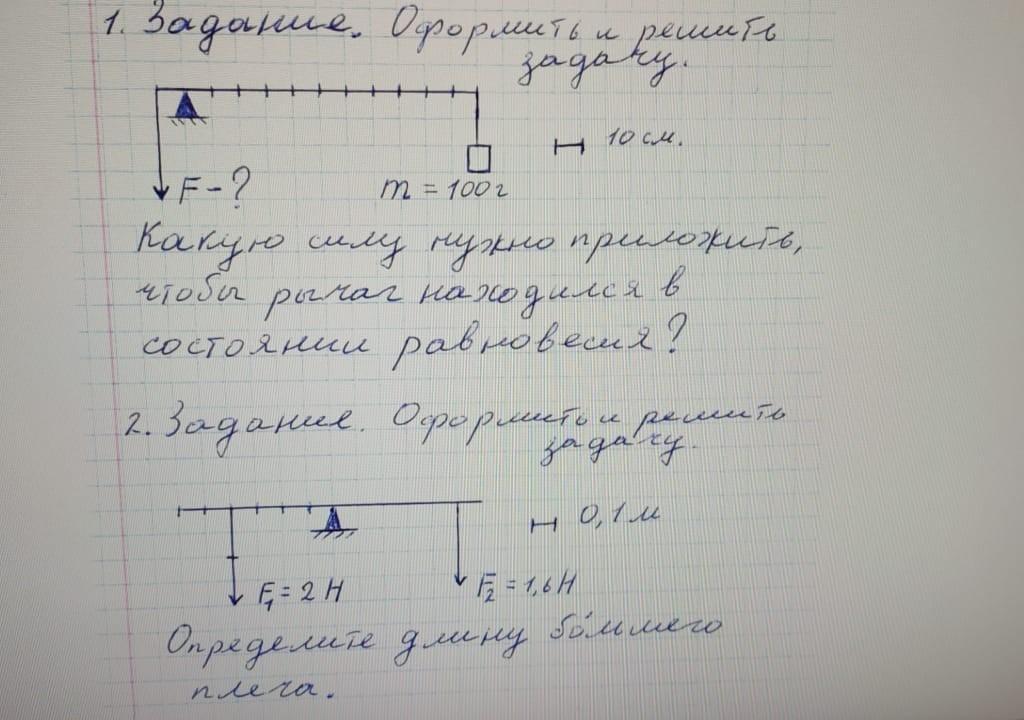 1. Задание. Оформить и решить
задачу.
10 см.
F - ?
m = 100 г
Какую силу нужно приложить,
чтобы рычаг находился в
состоянии равновесия?
2. Задание. Оформить и решить
задачу.
0,1 м
F₁ = 2 Н
F₂ = 1,6 Н
Определите длину бо́льшего
плеча.